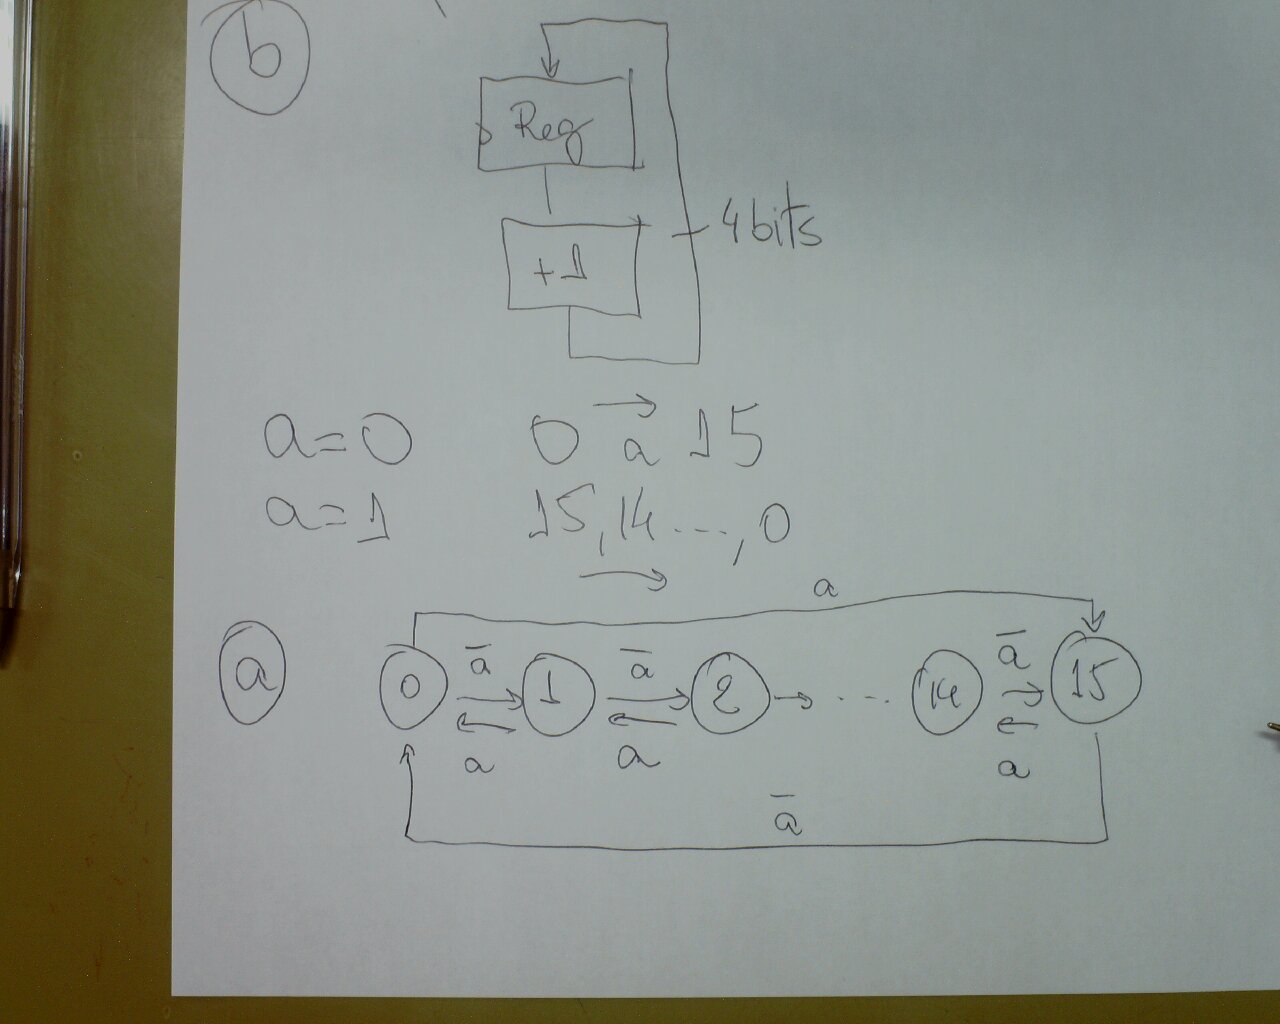 b
Reg
+1
4 bits
a=0 0 → a 15
a=1 15, 14 ..., 0
→
a
a
ā ā ā
0 1 2 → ... 14 15
a a a
ā